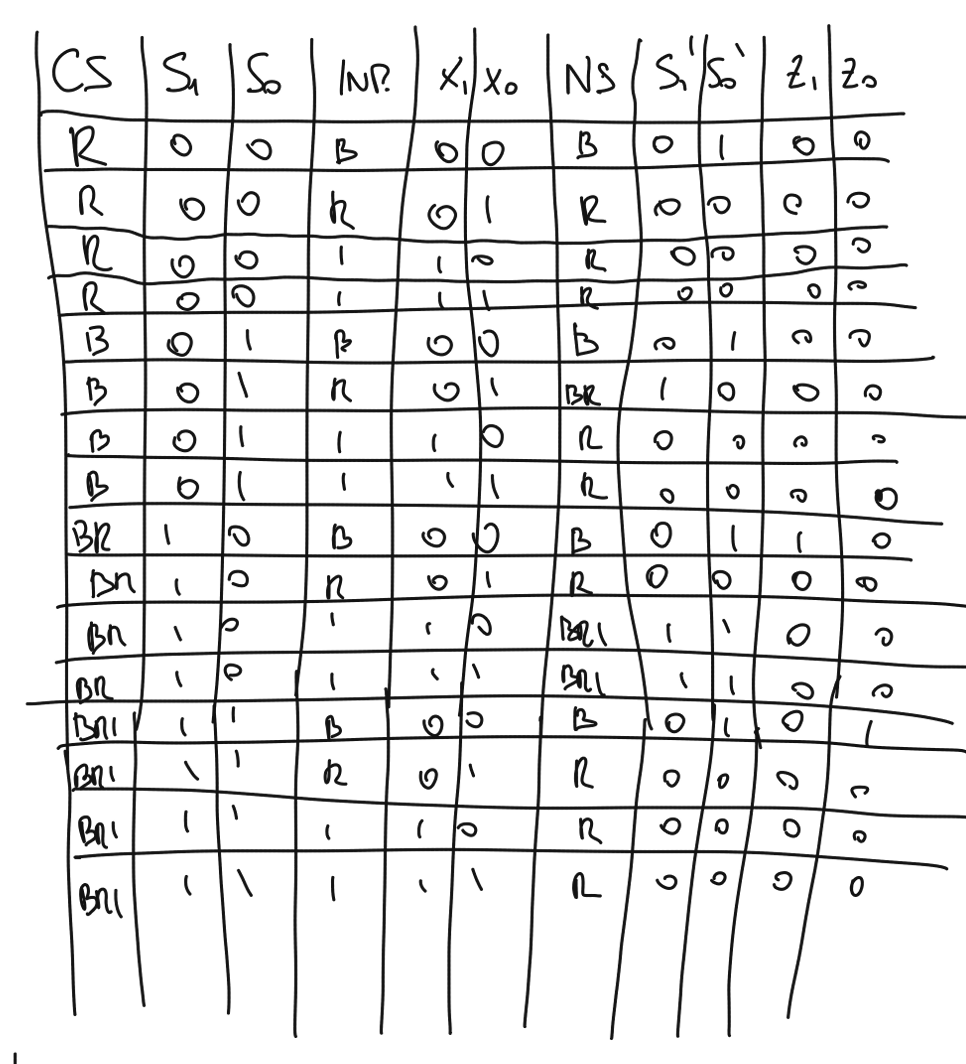 CS S₁ S₀ INP. X₁ X₀ NS S₁' S₀' Z₁ Z₀
R 0 0 B 0 0 B 0 1 0 0
R 0 0 R 0 1 R 0 0 0 0
R 0 0 1 1 0 R 0 0 0 0
R 0 0 1 1 1 R 0 0 0 0
B 0 1 B 0 0 B 0 1 0 0
B 0 1 R 0 1 BR 1 0 0 0
B 0 1 1 1 0 R 0 0 0 0
B 0 1 1 1 1 R 0 0 0 0
BR 1 0 B 0 0 B 0 1 1 0
BR 1 0 R 0 1 R 0 0 0 0
BR 1 0 1 1 0 BR1 1 1 0 0
BR 1 0 1 1 1 BR1 1 1 0 0
BR1 1 1 B 0 0 B 0 1 0 1
BR1 1 1 R 0 1 R 0 0 0 0
BR1 1 1 1 1 0 R 0 0 0 0
BR1 1 1 1 1 1 R 0 0 0 0